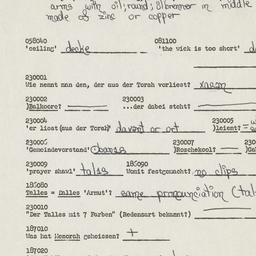 arms with oil; round; Slbrimmer in middle
made of zinc or copper
058040 081100
'ceiling' deake 'the vick is too short' d
230001
Wie nennt man den, der aus der Torah vorliest?
230002 230003
)Balkoore? ...der dabei steht?
230004 230005
'er liest (aus der Torah)' davent or ort )leient?
230006 230007 230
'Gemeindevorstand' )Roschekool? )Ga
230009 185090
'prayer shawl' talis Womit festgemacht? no clips
185080
Talles = Dalles 'Armut'? same pronunciation (tal
230010
"Der Talles mit 7 Farben" (Redensart bekannt?)
187010
Was hat Menorah geheissen? +
187020